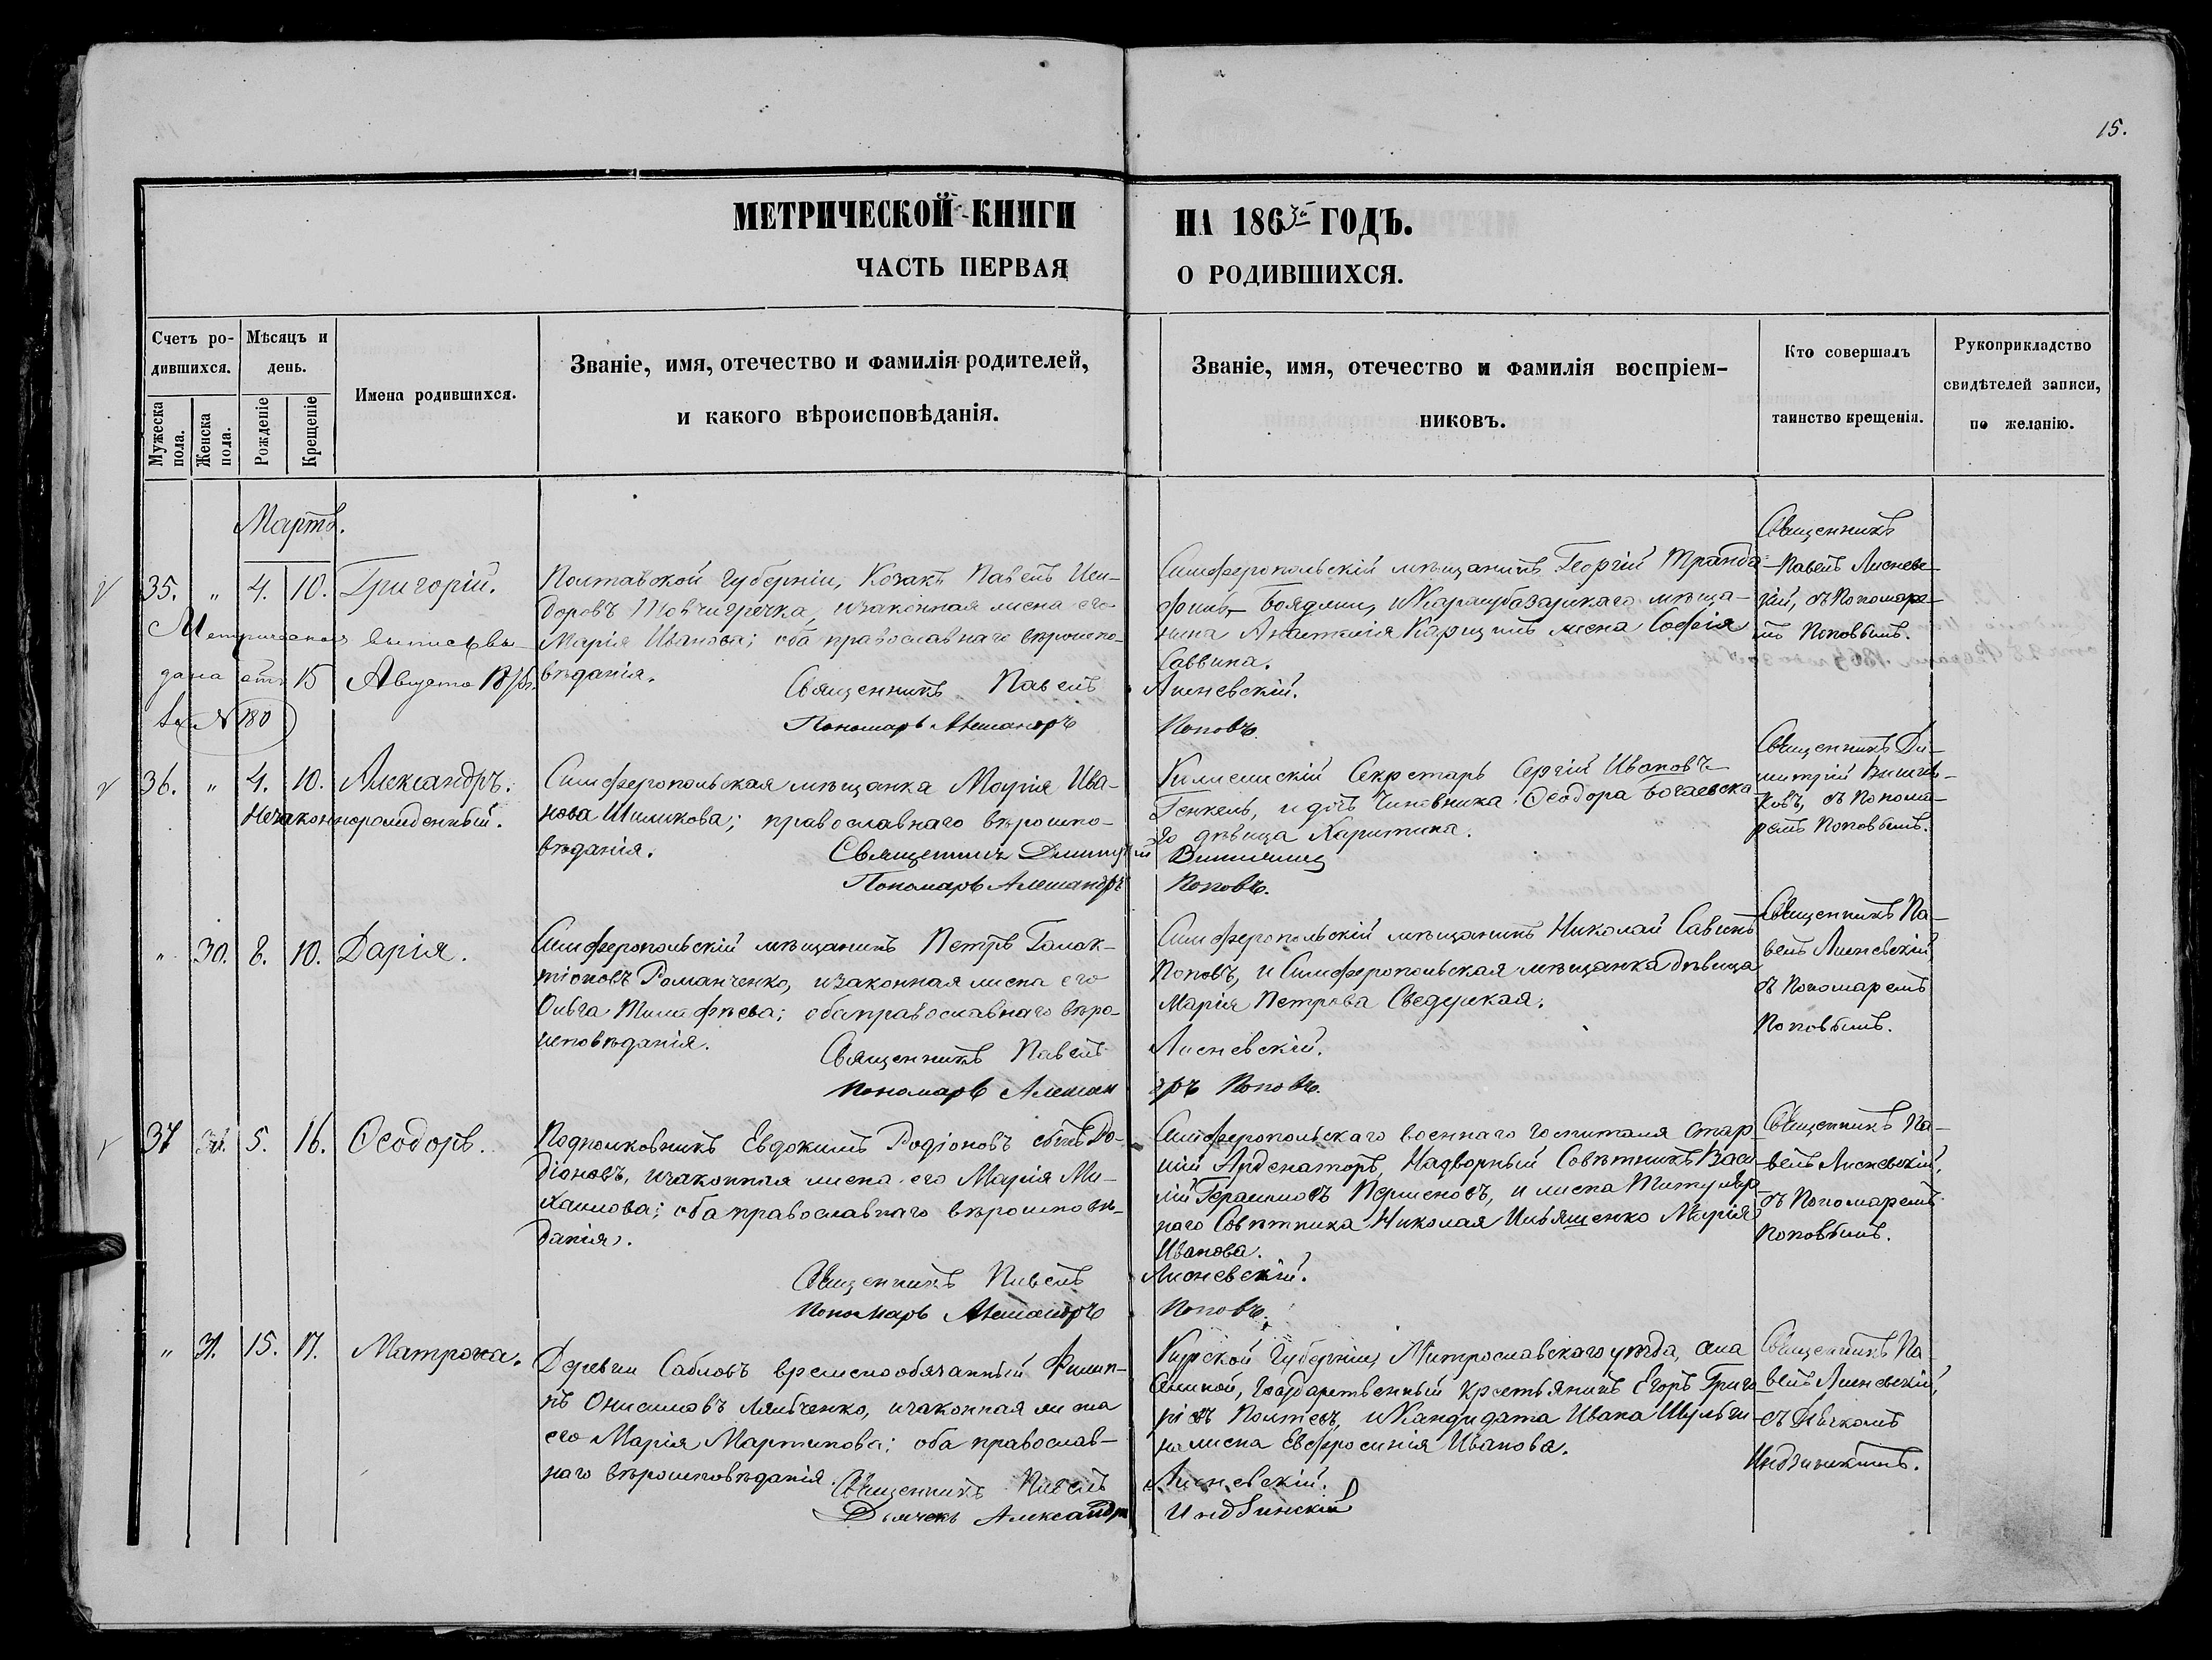 15.
МЕТРИЧЕСКОЙ КНИГИ НА 1863й ГОДЪ.
ЧАСТЬ ПЕРВАЯ О РОДИВШИХСЯ.
Счетъ ро-
дившихся.
Мужеска
пола.
Женска
пола.
Мѣсяцъ и
день.
Рожденіе
Крещеніе
Имена родившихся.
Званіе, имя, отечество и фамилія родителей,
и какого вѣроисповѣданія.
Званіе, имя, отечество и фамилія воспріем-
никовъ.
Кто совершалъ
таинство крещенія.
Рукоприкладство
свидѣтелей записи,
по желанію.
Мартъ.
35. " 4. 10. Григорій.
Метрическая выпись вы-
дана отъ 15 Августа
за № 180
Полтавской Губерніи, Козакъ Павелъ Иси-
доровъ Товчигречка, и законная жена его
Марія Иванова; оба православнаго вѣроиспо-
вѣданія.
Священникъ Павелъ Лисневскій.
Пономарь Александръ Поповъ.
Симферопольскій мѣщанинъ Георгій
и Карасубазарскаго мѣща-
нина жена Софія
Саввина.
Священникъ
Павелъ Лиснев-
скій, съ Пономаре-
мъ Поповымъ.
36. " 4. 10. Александръ.
Незаконнорожденный.
Симферопольская мѣщанка Марія Ива-
нова Шиликова; православнаго вѣроиспо-
вѣданія.
Священникъ Димитрій
Пономарь Александръ Поповъ.
Секретарь Сергій Ивановъ
Генкель, и дочь Чиновника Ѳеодора Богаевска-
го дѣвица Харитина.
Священникъ Ди-
митрій
ковъ, съ Понома-
ремъ Поповымъ.
" 30. 8. 10. Дарія.
Симферопольскій мѣщанинъ Петръ Галак-
тіоновъ Романченко, и законная жена его
Ольга Тимофѣева; оба православнаго вѣро-
исповѣданія.
Священникъ Павелъ Лисневскій.
Пономарь Александръ Поповъ.
Симферопольскій мѣщанинъ Николай Савинъ
Поповъ, и Симферопольская мѣщанка дѣвица
Марія Петрова
Священникъ Па-
велъ Лисневскій
съ Пономаремъ
Поповымъ.
37 5. 16. Ѳеодоръ.
Подполковникъ Евдокимъ Родіоновъ сынъ Ро-
діоновъ, и законная жена его Марія Ми-
хаилова; оба православнаго вѣроисповѣ-
данія.
Священникъ Павелъ Лисневскій.
Пономарь Александръ Поповъ.
Симферопольскаго военнаго госпиталя стар-
шій Арденаторъ, Надворный Совѣтникъ Васи-
лій Герасимовъ и жена Титуляр-
наго Совѣтника Николая Ильяшенко Марія
Иванова.
Священникъ Па-
велъ Лисневскій,
съ Пономаремъ
Поповымъ.
" 31. 15. 17. Матрона.
Деревни Сабловъ временообязанный Филип-
пъ Онисимовъ Лямбченко, и законная жена
его Марія Мартинова; оба православ-
наго вѣроисповѣданія.
Священникъ Павелъ Лисневскій.
Дьячекъ Александръ Индзинскій
Курской Губерніи, уѣзда,
Государственный крестьянинъ Егоръ Григо-
рьевъ и Кандидата Ивана Шульги-
на жена Евфросинія Иванова.
Священникъ Па-
велъ Лисневскій,
съ Дьячкомъ
Индзинскимъ.